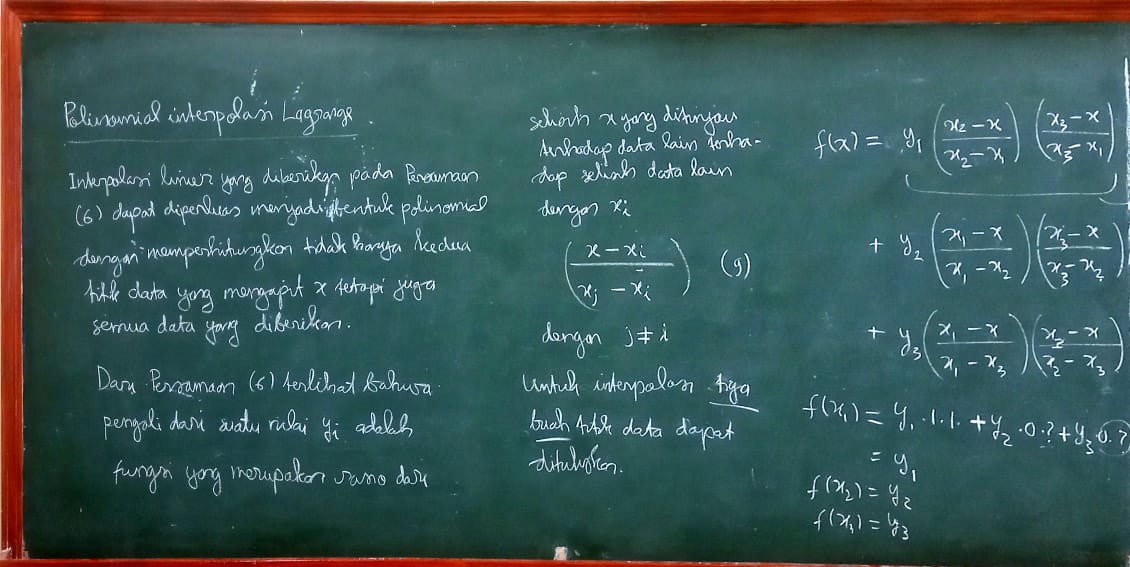 Polinomial interpolasi Lagrange.
Interpolasi linier yang diberikan pada Persamaan
(6) dapat diperluas menjadi bentuk polinomial
dengan memperhitungkan tidak hanya kedua
titik data yang mengapit x tetapi juga
semua data yang diberikan.
Dari Persamaan (6) terlihat bahwa
pengali dari suatu nilai yi adalah
fungsi yang merupakan rasio dari
selisih x yang ditinjau
terhadap data lain terha-
dap selisih data lain
dengan xi
(x - xi / xj - xi) (9)
dengan j ≠ i
Untuk interpolasi tiga
buah titik data dapat
dituliskan.
f(x) = y₁ (x₂ - x / x₂ - x₁) (x₃ - x / x₃ - x₁)
+ y₂ (x₁ - x / x₁ - x₂) (x₃ - x / x₃ - x₂)
+ y₃ (x₁ - x / x₁ - x₃) (x₂ - x / x₂ - x₃)
f(x₁) = y₁ · 1 · 1 · + y₂ · 0 · ? + y₃ 0 · ?
= y₁
f(x₂) = y₂
f(x₃) = y₃